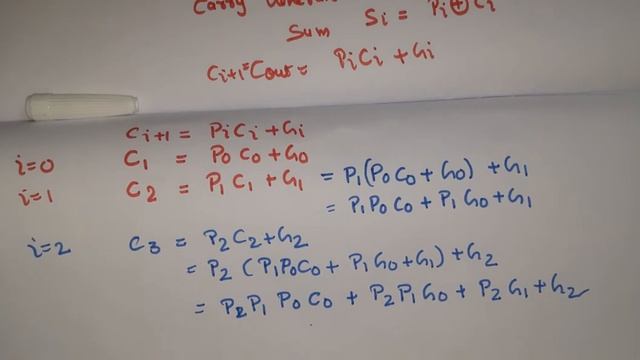 Carry
Sum Si = Pi⊕Ci
Ci+1=Cout= PiCi + Gi
Ci+1 = PiCi+Gi
i=0 C1 = P0C0+G0
i=1 C2 = P1C1+G1 = P1(P0C0+G0) +G1
= P1P0C0 + P1G0+G1
i=2 C3 = P2C2+G2
= P2 (P1P0C0+ P1G0+G1) +G2
= P2P1P0C0 + P2P1G0+ P2G1+G2